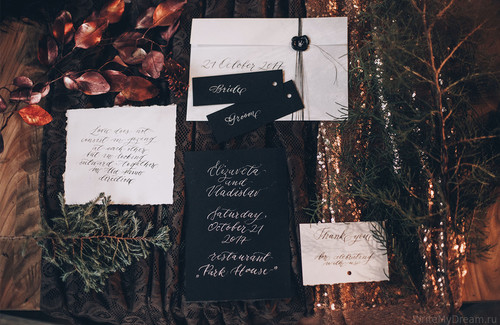 21 October 2017
Bride
Groom
Love does not
consist in gazing
at each other
but in looking
outward together
in the same
direction
Elizaveta
and
Vladislav
Saturday,
October 21
2017
restaurant
"Park House"
Thank you
for celebrating
with us
WriteMyDream.ru